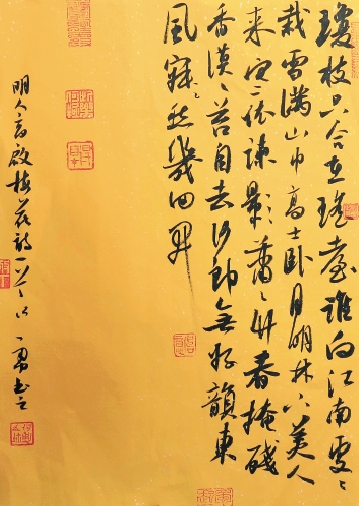 瓊枝只合在瑤臺誰向江南處〻
栽雪滿山中高士臥月明林下美人
來寒依疎影蕭〻竹春掩殘
香漠〻苔自去何郎無好韻東
風寂〻愁幾回開
明人高啟梅花詩一首 書之